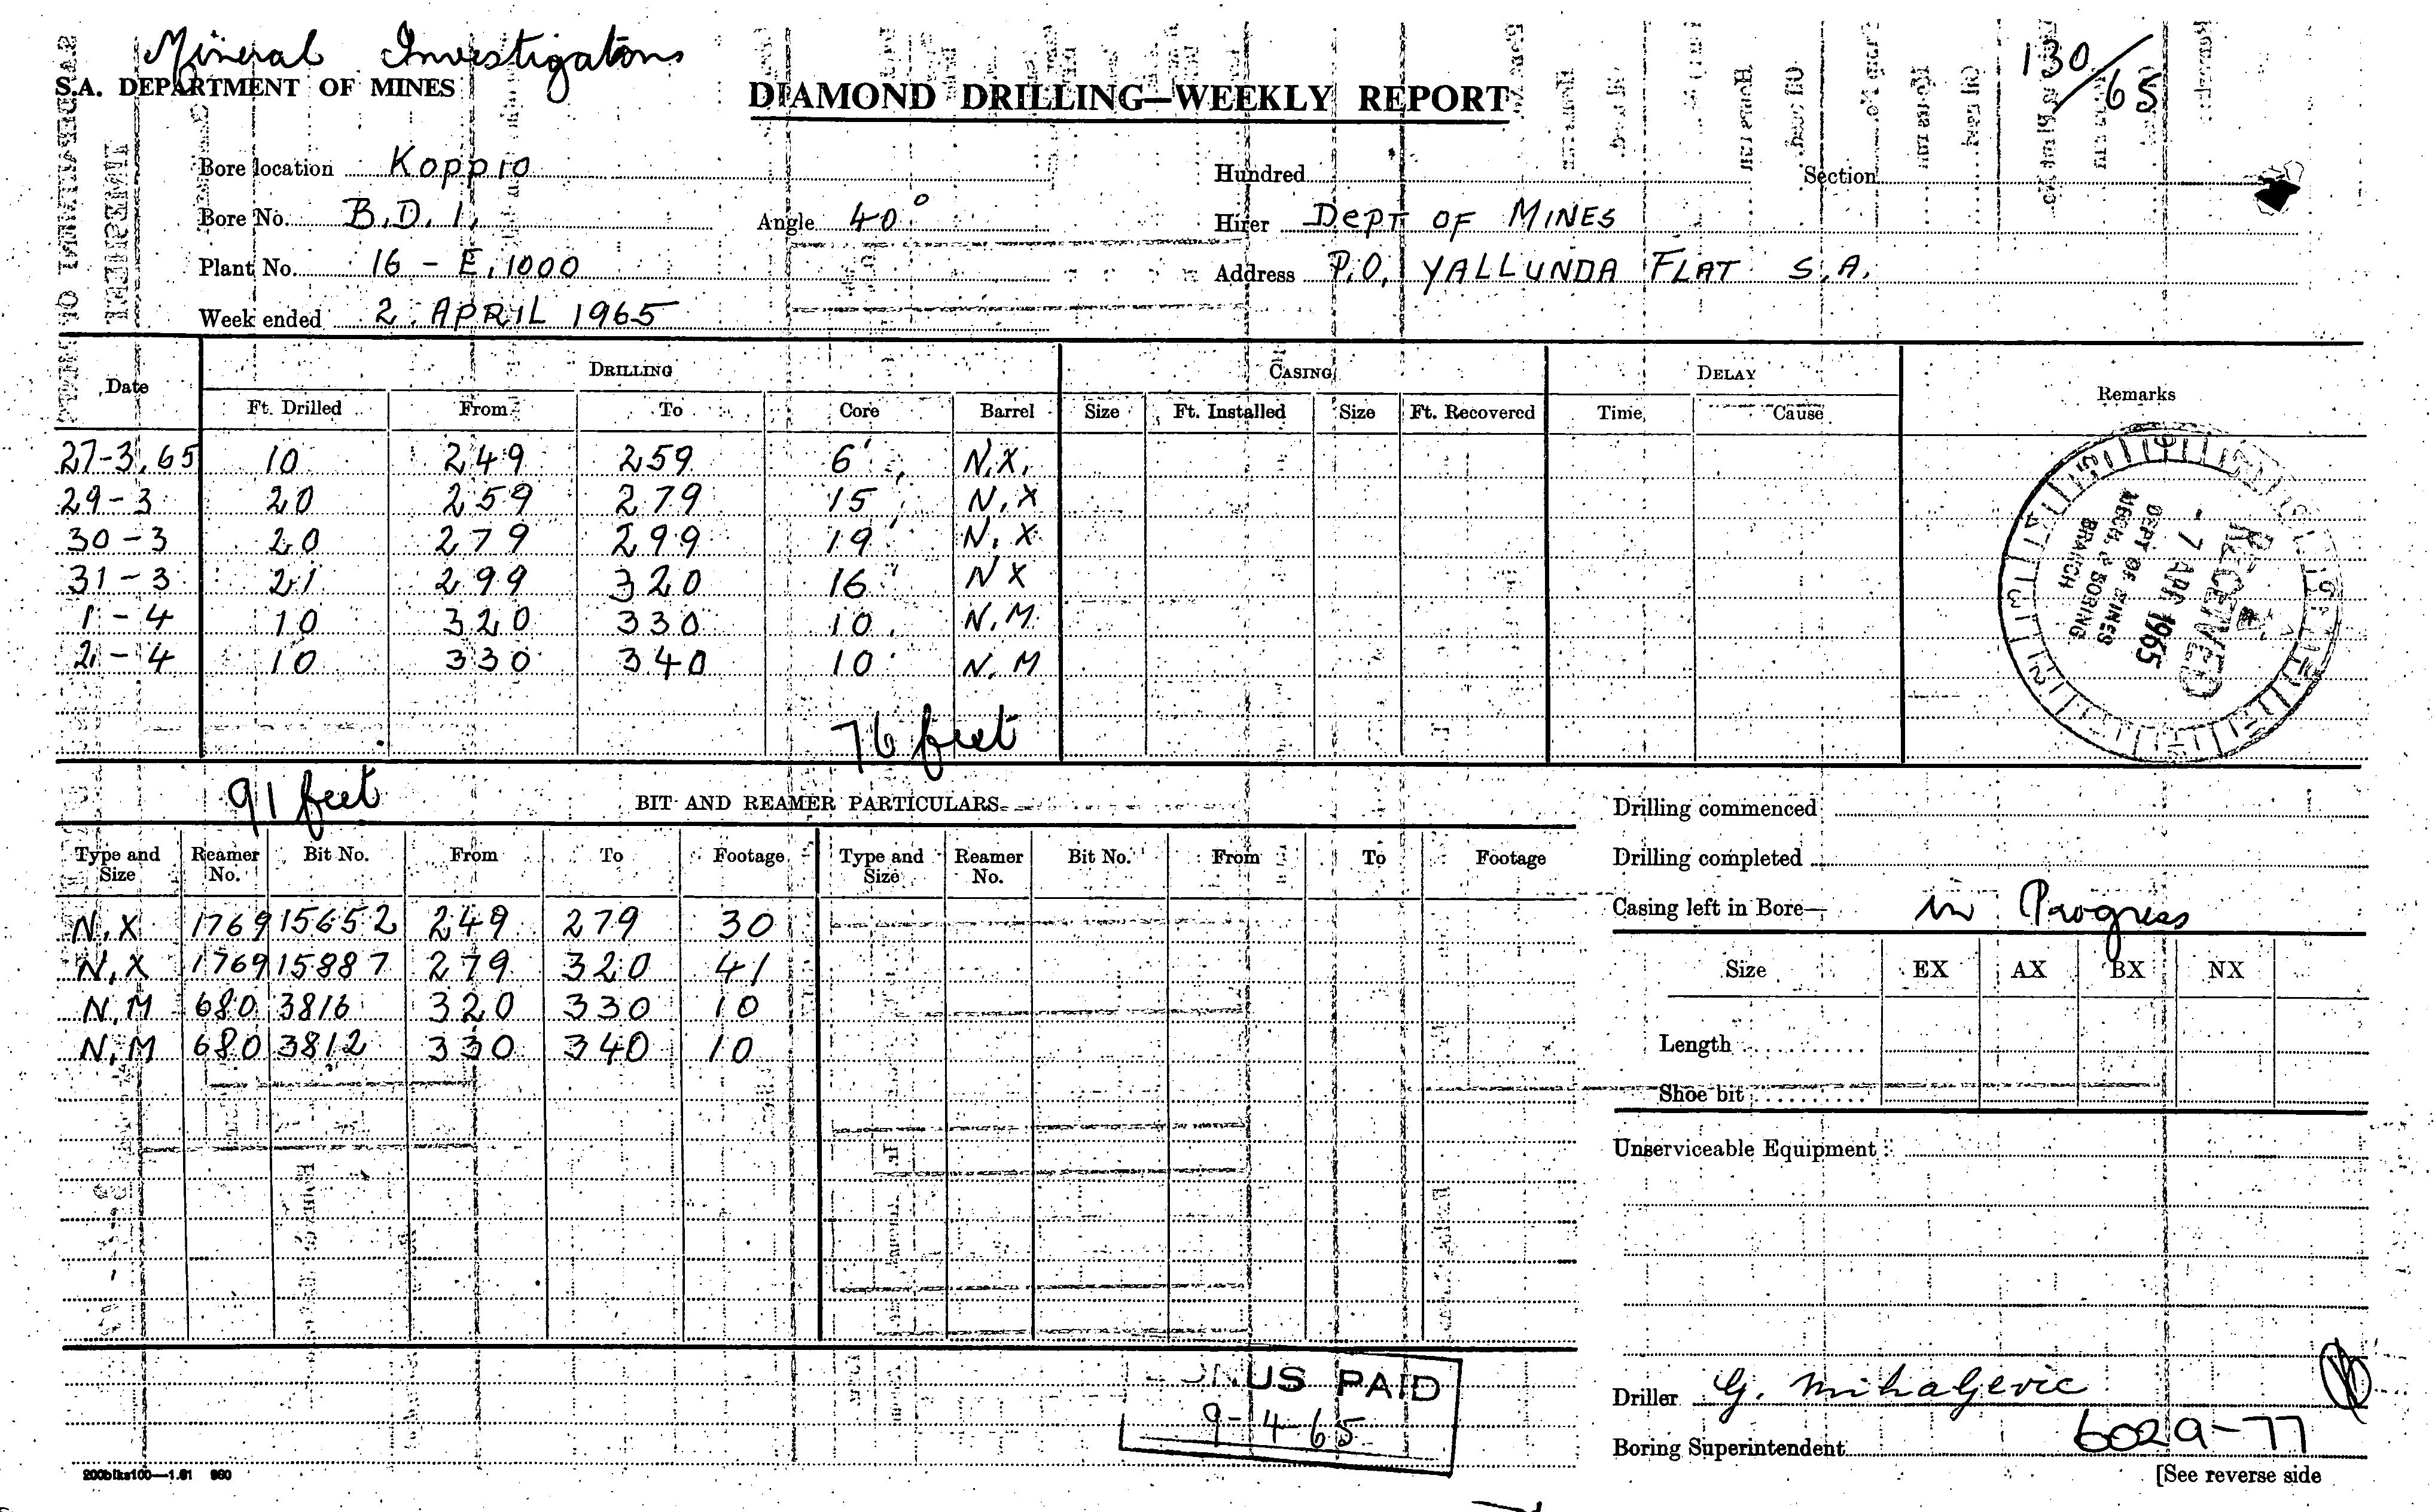 Mineral Investigatons
130/65
S.A. DEPARTMENT OF MINES
DIAMOND DRILLING—WEEKLY REPORT
Bore location Koppio Hundred Section
Bore No. B.D.1. Angle 40° Hirer Dept OF MINES
Plant No. 16 - E.1000 Address P.O. YALLUNDA FLAT S.A.
Week ended 2 APRIL 1965
Date DRILLING CASING DELAY Remarks
Ft. Drilled From To Core Barrel Size Ft. Installed Size Ft. Recovered Time Cause
27-3.65 10 249 259 6' N.X.
29-3 20 259 279 15 N.X
30-3 20 279 299 19 N.X
31-3 21 299 320 16 NX
1-4 10 320 330 10 N.M
2-4 10 330 340 10 N.M
RECEIVED
- 7 APR 1965
DEPT OF MINES
MECH. & BORING
BRANCH
76 feet
91 feet
BIT AND REAMER PARTICULARS
Type and Size Reamer No. Bit No. From To Footage Type and Size Reamer No. Bit No. From To Footage
N.X 1769 15652 249 279 30
N.X 1769 15887 279 320 41
N.M 680 3816 320 330 10
N.M 680 3812 330 340 10
Drilling commenced
Drilling completed
Casing left in Bore— in Progress
Size EX AX BX NX
Length
Shoe bit
Unserviceable Equipment
US PAID
9-4-65
Driller G. Mihaljevic
Boring Superintendent 6029-77
200blks100—1.61 980
[See reverse side